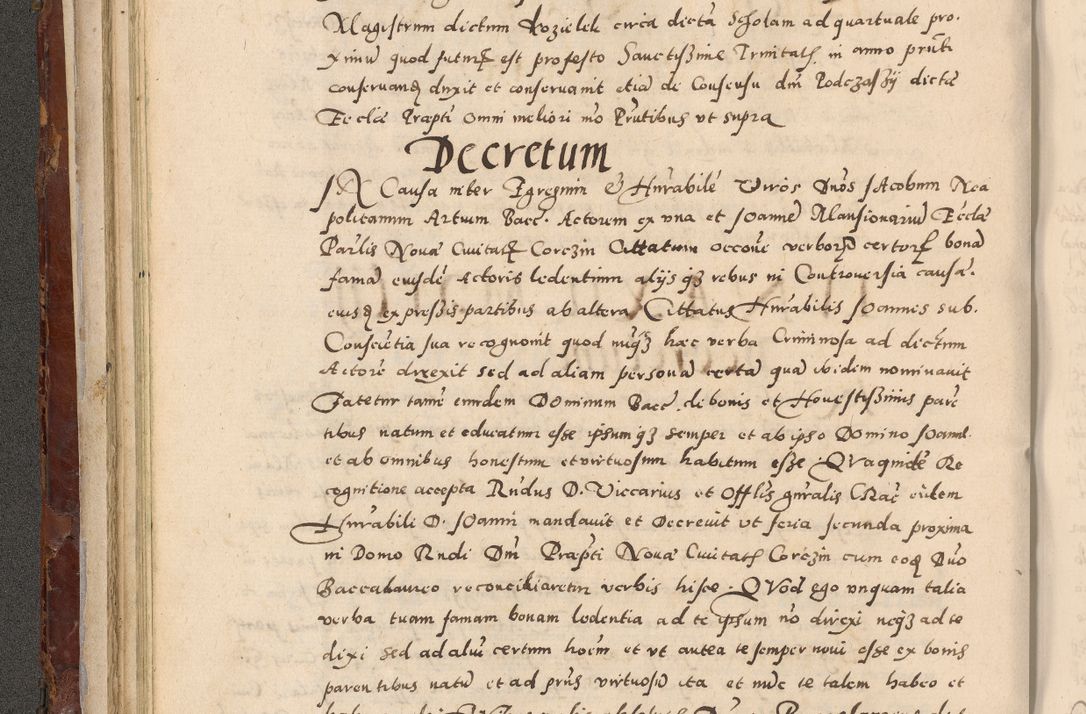 Magistrum dictum Kozielek circa dictã Scholam ad quartuale pro-
ximũ quod futurũ est pro festo Sanctissime Trinitatis in anno prñti
conservand duxit et conservavit etiã de Consensu dñi Podczaszÿ dictæ
Ecclæ Præpti Omni meliori mõ Prñtibus ut supra
Decretum
IN Causa inter Egregium & Hnrabilẽ Viros Dños IAcobum Nea
politanum Artium Bacc. Actorem ex una et Ioannẽ Mansionariũ Ecclæ
Par̃lis Novæ Civitatis Corczin Cittatum occõne verborũ certorũ bonã
famã eiusdẽ Actoris ledentium alijsqʒ rebus in Controversia causa.
eiusq expressis partibus ab altera Cittatus Hnrabilis Ioannes sub.
Consciẽtia sua recognovit quod nuqʒ hæc verba Criminosa ad dictum
Actorẽ direxit sed ad aliam personã certã quã ibidem nominavit
Fatetur tamẽ eundem Dominum Bacc. de bonis et Honestissimis paren
tibus natum et educatum esse ipsumqʒ semper et ab ipso Domino Ioann.
et ab omnibus honestum et virtuosum habitum esse. QVa quidẽ Re
cognitione accepta Rñdus D. Viccarius et Offlis gñralis CRac eidem
Hnrabili D. Ioanni mandavit et Decrevit ut feria secunda proxima
in Domo Rndi Dñi Præpti Novæ Civitatis Corczin cum eoq Dño
Baccalaureo reconciliaretur verbis hisce. QVod ego unquam talia
verba tuam famam bonam ledentia ad te ipsum nõ direxi neqʒ ad te
dixi sed ad aliũ certum hoẽm et ut antea te semper novi esse ex bonis
parentibus natũ et ad prñs virtuosũ ita et nũc te talem habeo et